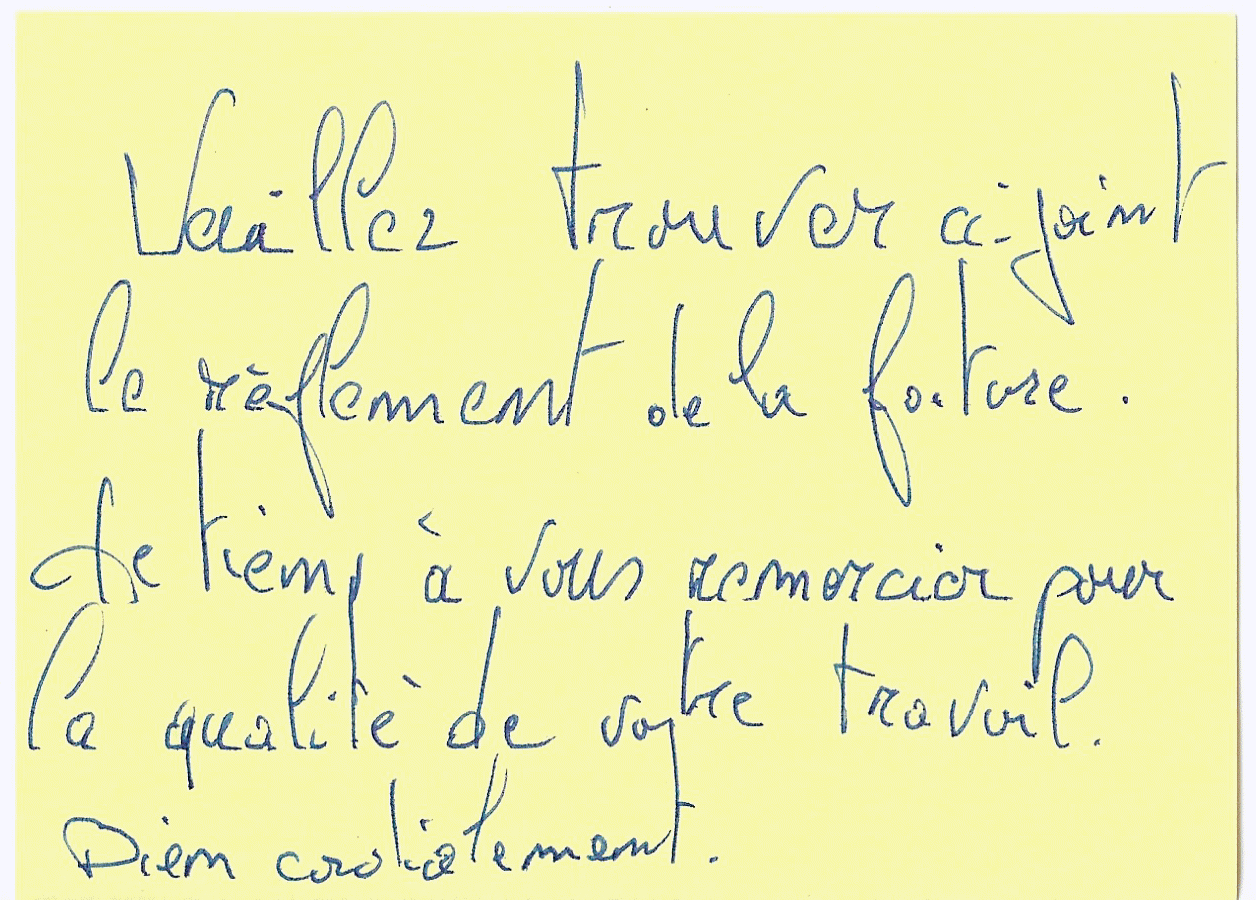 Veuillez trouver ci-joint
le règlement de la facture.
Je tiens à vous remercier pour
la qualité de votre travail.
Bien cordialement.